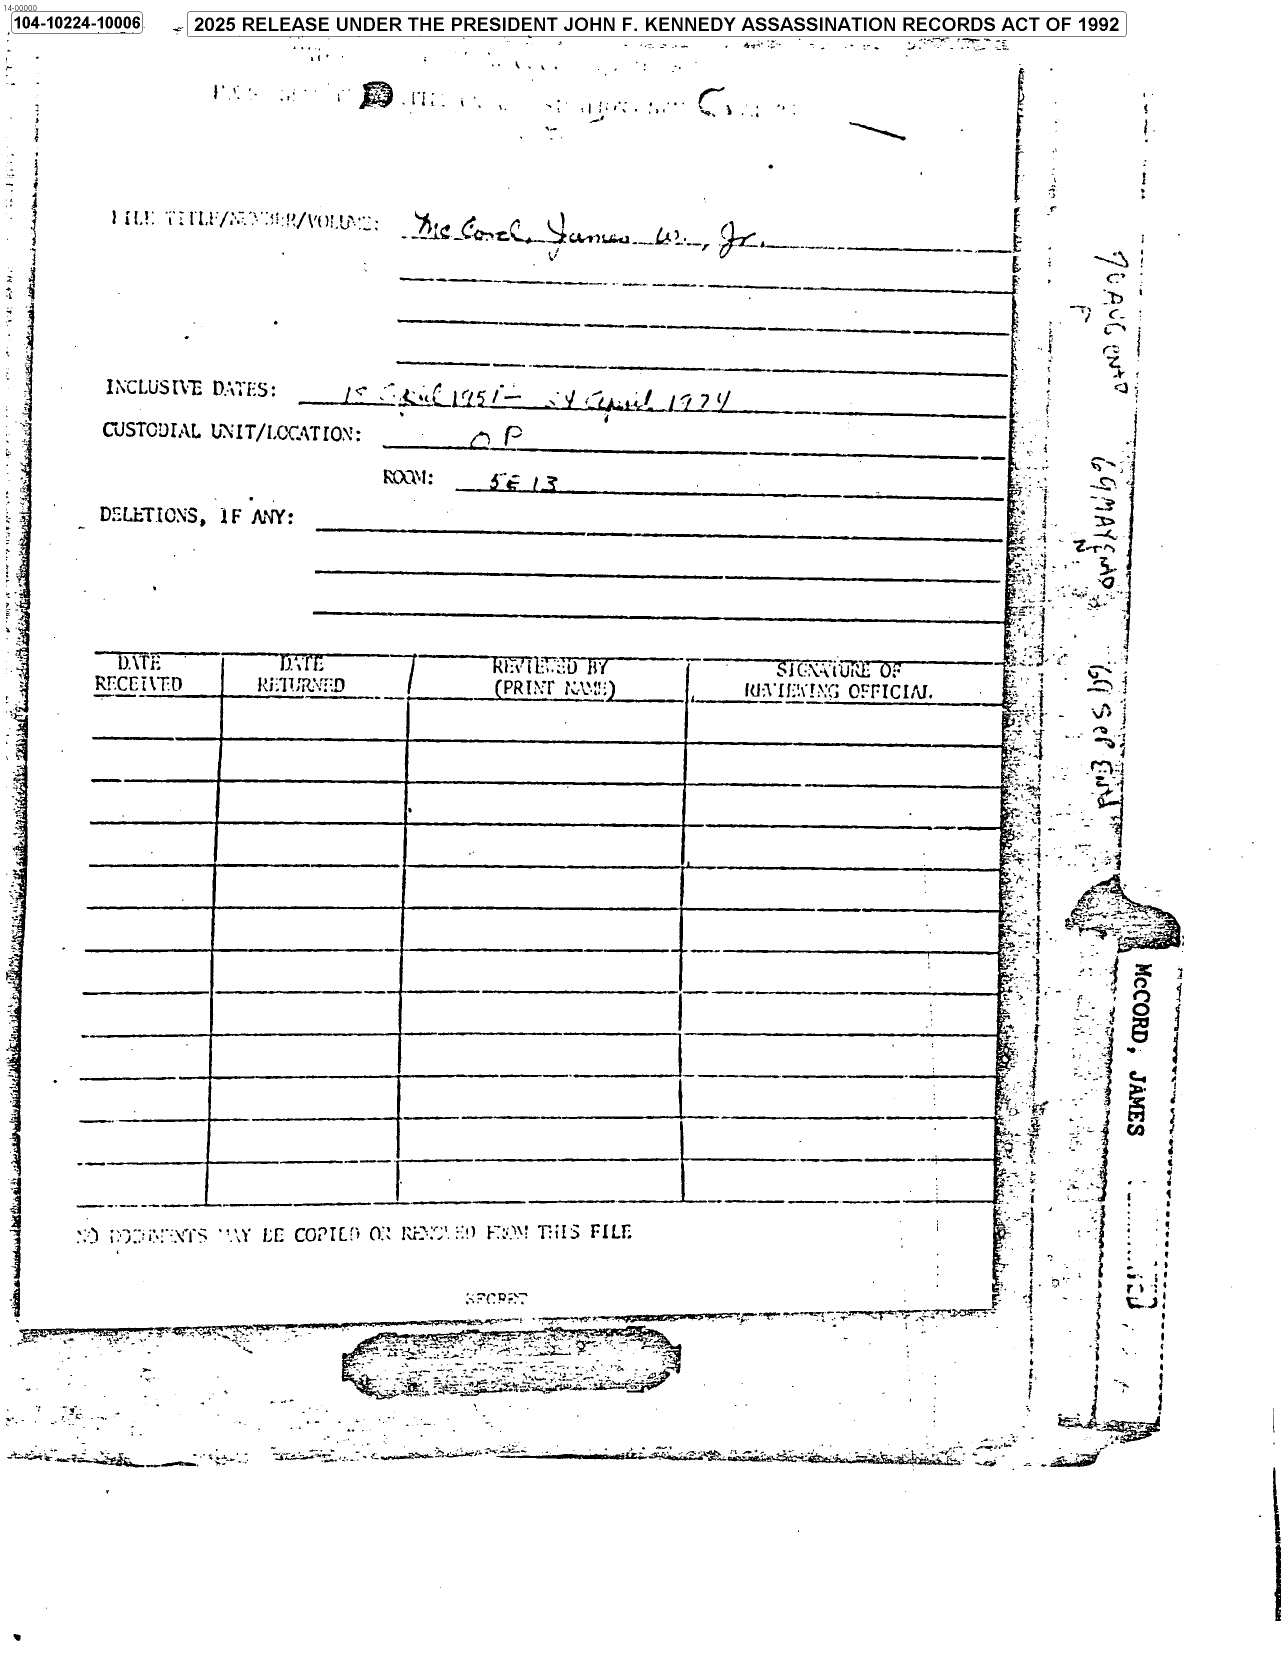 14-00000
104-10224-10006
2025 RELEASE UNDER THE PRESIDENT JOHN F. KENNEDY ASSASSINATION RECORDS ACT OF 1992
FILE TITLE/NUMBER/VOLUME: McCord, James W., Jr.
INCLUSIVE DATES: April 1951 - 24 April 1974
CUSTODIAL UNIT/LOCATION: OP
ROOM: 5E13
DELETIONS, IF ANY:
DATE RECEIVED DATE RETURNED REVIEWED BY (PRINT NAME) SIGNATURE OF REVIEWING OFFICIAL
NO DOCUMENTS MAY BE COPIED OR REMOVED FROM THIS FILE
SECRET
70 AUG
69 MAY
69 Sep End
McCORD, JAMES